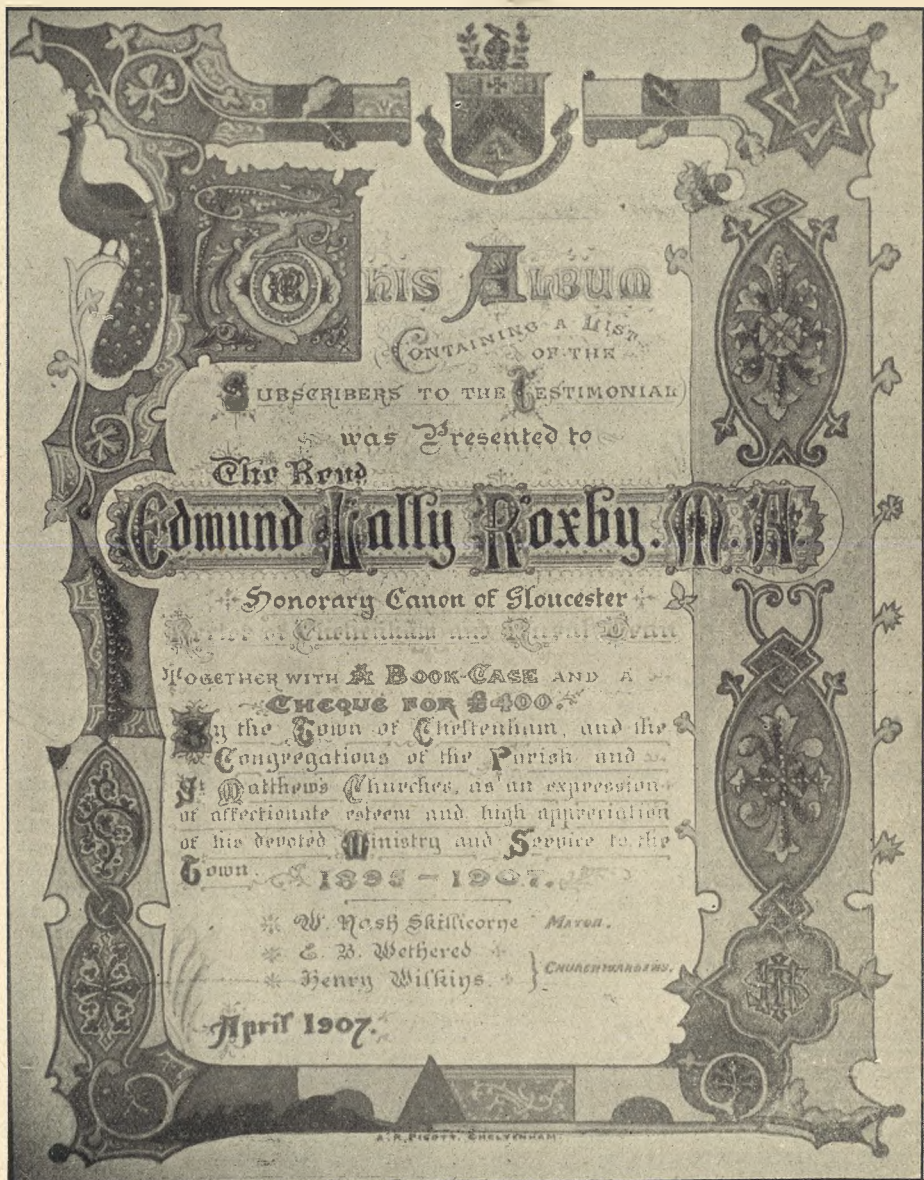 This Album
Containing a List
of the
Subscribers to the Testimonial)
was Presented to
The Revd
Edmund Lally Roxby. M. A.
Honorary Canon of Gloucester
Rector of Cheltenham and Rural Dean
Together with A Book-Case and a
Cheque for £400.
By the Town of Cheltenham, and the
Congregations of the Parish and
St Matthews Churches, as an expression
of affectionate esteem and high appreciation
of his devoted Ministry and Service to the
Town
1895-1907.
W. Nash Skillicorne Mayor.
E. B. Wethered
Henry Wilkins. Churchwardens.
April 1907.
A. R. Pigott. Cheltenham.